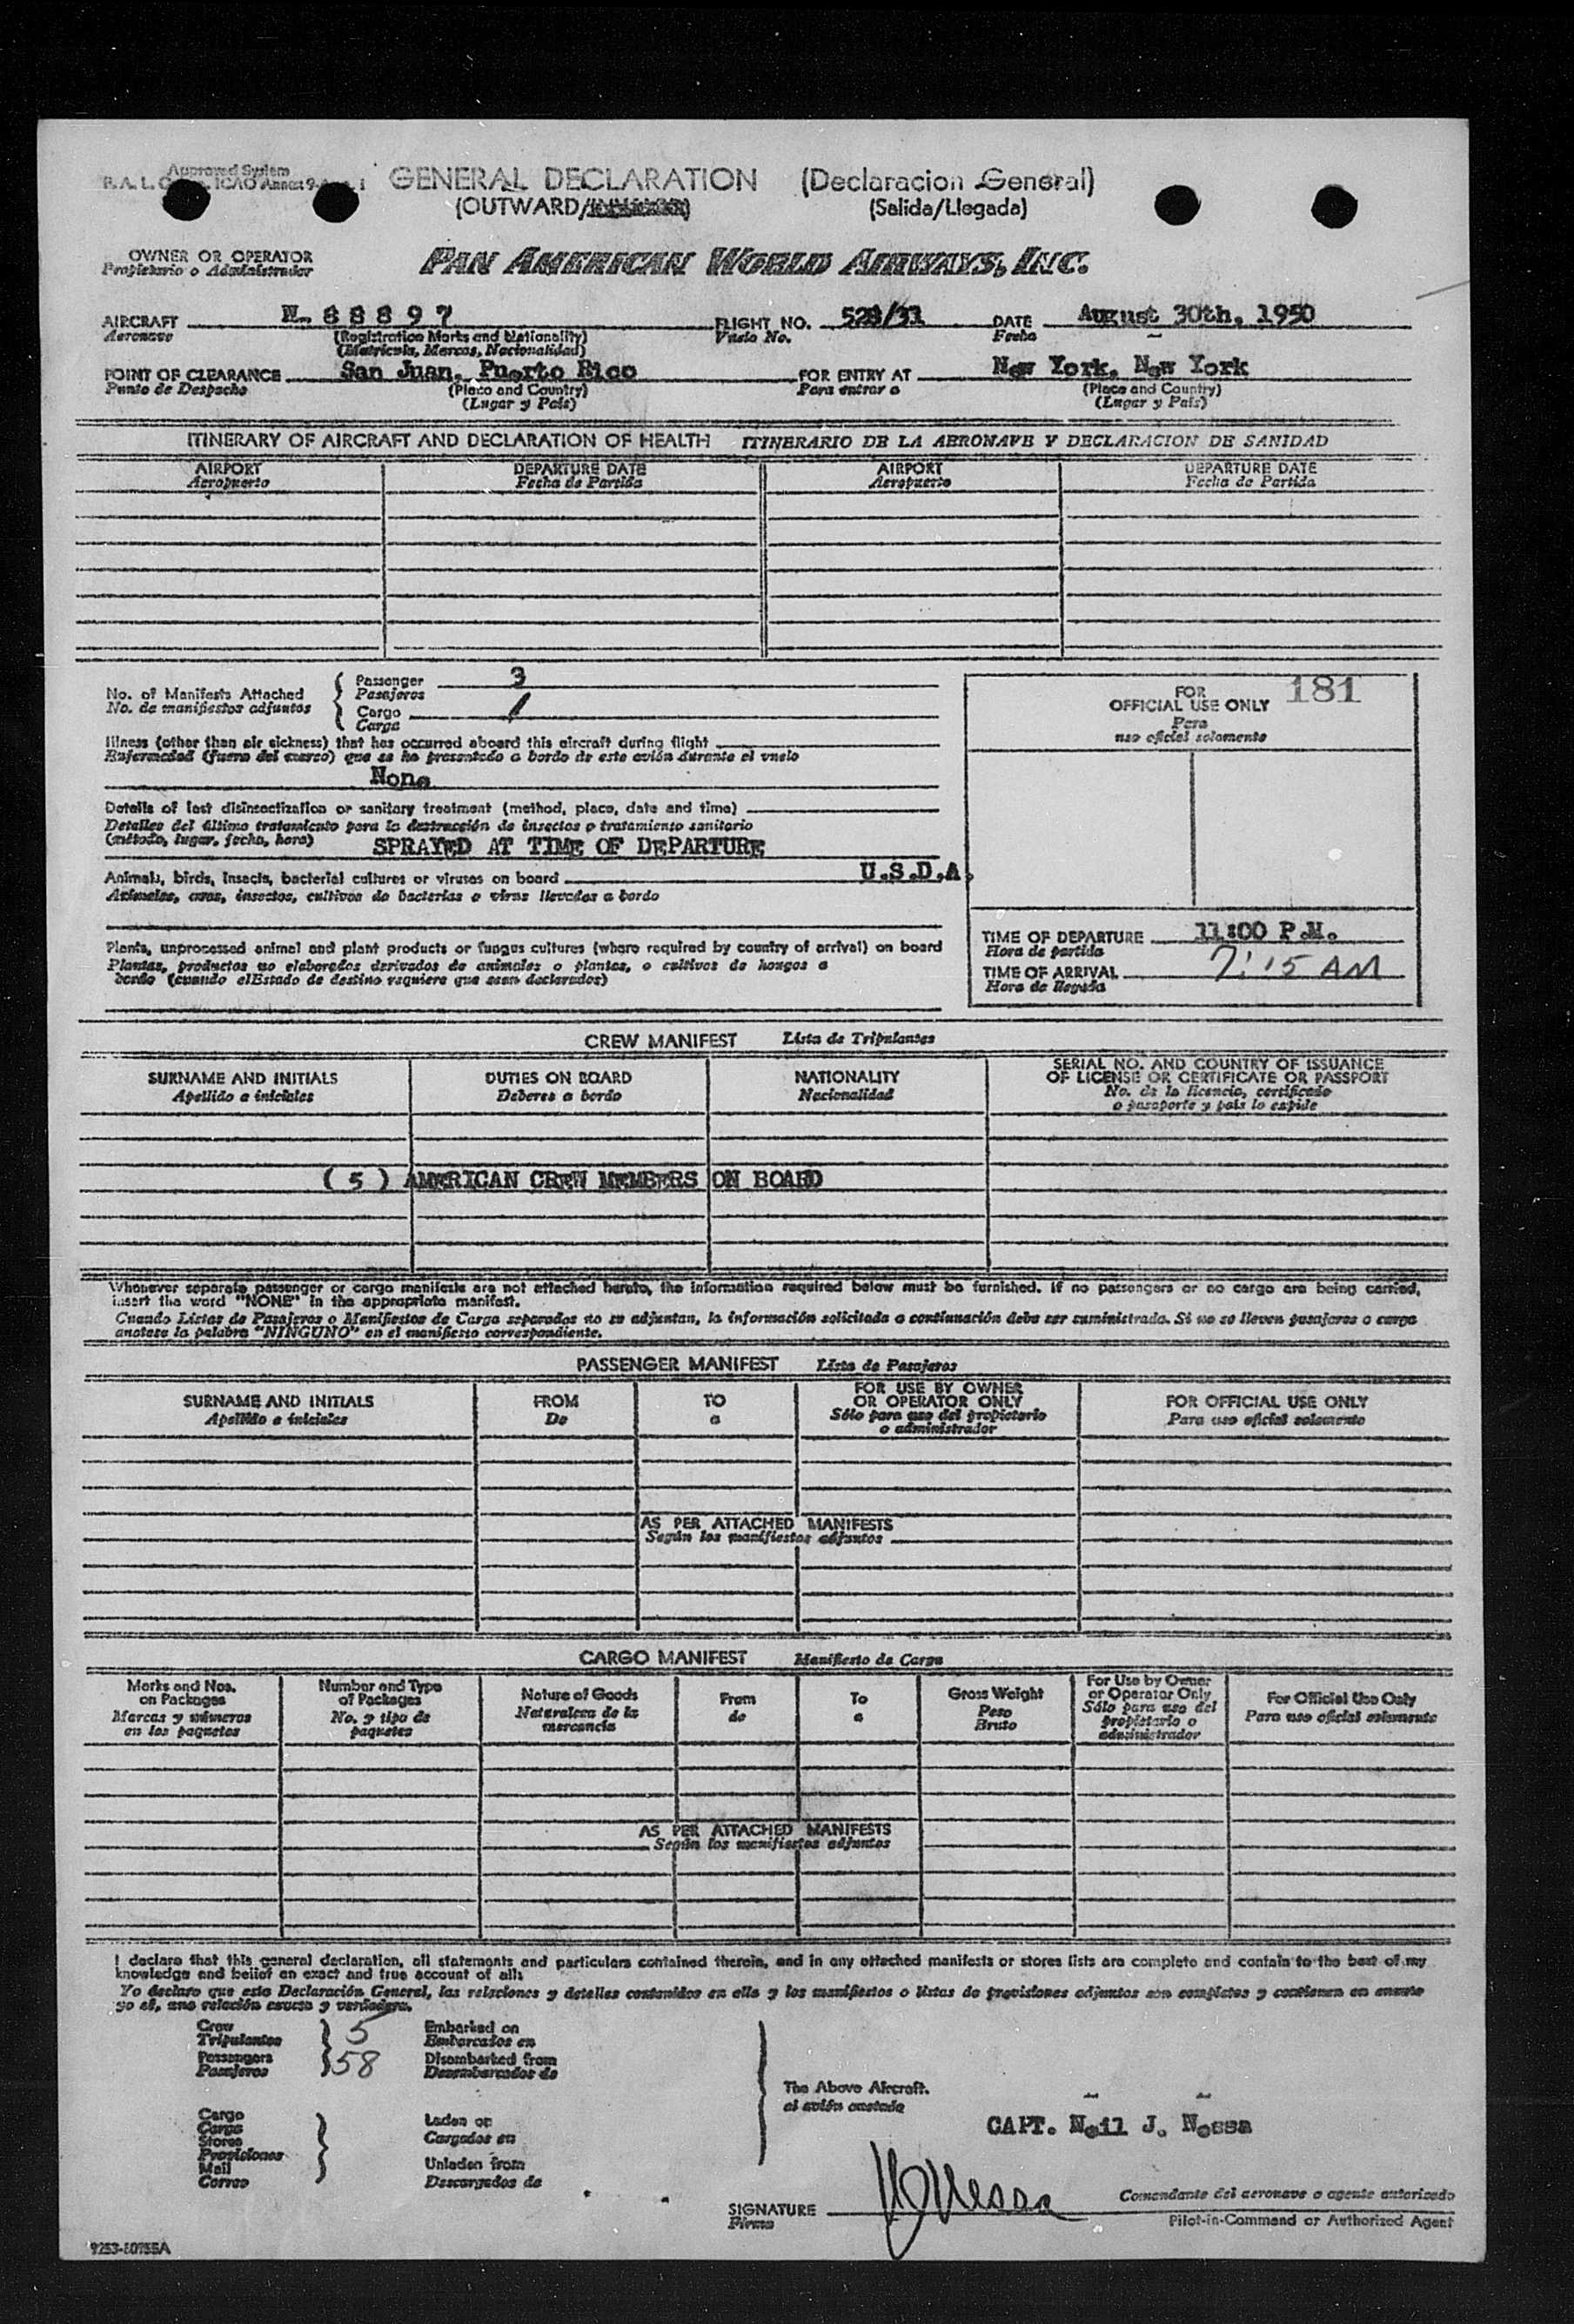 Approved System
GENERAL DECLARATION (Declaracion General)
(OUTWARD/ (Salida/Llegada)
OWNER OR OPERATOR
Propietario o Administrador
PAN AMERICAN WORLD AIRWAYS, INC.
AIRCRAFT N- 88897 FLIGHT NO. 528/31 DATE August 30th, 1950
Aeronave (Registration Marks and Nationality) Vuelo No. Fecha
(Matricula, Marcas, Nacionalidad)
POINT OF CLEARANCE San Juan, Puerto Rico FOR ENTRY AT New York, New York
Punto de Despacho (Place and Country) Para entrar a (Place and Country)
(Lugar y País) (Lugar y País)
ITINERARY OF AIRCRAFT AND DECLARATION OF HEALTH ITINERARIO DE LA AERONAVE Y DECLARACION DE SANIDAD
AIRPORT DEPARTURE DATE AIRPORT DEPARTURE DATE
Aeropuerto Fecha de Partida Aeropuerto Fecha de Partida
No. of Manifests Attached
No. de manifiestos adjuntos
Passenger 3
Pasajeros
Cargo 1
Carga
FOR
OFFICIAL USE ONLY 181
Para
uso oficial solamente
Illness (other than air sickness) that has occurred aboard this aircraft during flight
Enfermedad (fuera del mareo) que se ha presentado a bordo de este avión durante el vuelo
None
Details of last disinsectization or sanitary treatment (method, place, date and time)
Detalles del último tratamiento para la destrucción de insectos o tratamiento sanitario
(método, lugar, fecha, hora) SPRAYED AT TIME OF DEPARTURE
Animals, birds, insects, bacterial cultures or viruses on board U.S.D.A.
Animales, aves, insectos, cultivos de bacterias o virus llevados a bordo
Plants, unprocessed animal and plant products or fungus cultures (where required by country of arrival) on board
Plantas, productos no elaborados derivados de animales o plantas, o cultivos de hongos a
bordo (cuando el Estado de destino requiere que sean declarados)
TIME OF DEPARTURE 11:00 P.M.
Hora de partida
TIME OF ARRIVAL 7:15 AM
Hora de llegada
CREW MANIFEST Lista de Tripulantes
SURNAME AND INITIALS DUTIES ON BOARD NATIONALITY SERIAL NO. AND COUNTRY OF ISSUANCE
OF LICENSE OR CERTIFICATE OR PASSPORT
Apellido e iniciales Deberes a bordo Nacionalidad No. de la licencia, certificado
o pasaporte y país lo expide
( 5 ) AMERICAN CREW MEMBERS ON BOARD
Whenever separate passenger or cargo manifests are not attached hereto, the information required below must be furnished. If no passengers or no cargo are being carried,
insert the word "NONE" in the appropriate manifest.
Cuando Listas de Pasajeros o Manifiestos de Carga separados no se adjuntan, la información solicitada a continuación debe ser suministrada. Si no se lleven pasajeros o carga
anotese la palabra "NINGUNO" en el manifiesto correspondiente.
PASSENGER MANIFEST Lista de Pasajeros
SURNAME AND INITIALS FROM TO FOR USE BY OWNER
OR OPERATOR ONLY FOR OFFICIAL USE ONLY
Apellido e iniciales De a Sólo para uso del propietario
o administrador Para uso oficial solamente
AS PER ATTACHED MANIFESTS
Según los manifiestos adjuntos
CARGO MANIFEST Manifiesto de Carga
Marks and Nos.
on Packages
Marcas y números
en los paquetes
Number and Type
of Packages
No. y tipo de
paquetes
Nature of Goods
Naturaleza de la
mercancía
From
de
To
a
Gross Weight
Peso
Bruto
For Use by Owner
or Operator Only
Sólo para uso del
propietario o
administrador
For Official Use Only
Para uso oficial solamente
AS PER ATTACHED MANIFESTS
Según los manifiestos adjuntos
I declare that this general declaration, all statements and particulars contained therein, and in any attached manifests or stores lists are complete and contain to the best of my
knowledge and belief an exact and true account of all:
Yo declaro que esta Declaración General, las relaciones y detalles contenidos en ella y los manifiestos o listas de provisiones adjuntos son completos y contienen en cuanto
yo sé, una relación exacta y verdadera.
Crew 5 Embarked on
Tripulantes Embarcados en
Passengers 58 Disembarked from
Pasajeros Desembarcados de
The Above Aircraft.
al avión anotado
Cargo
Carga
Stores
Provisiones
Mail
Correo
Laden on
Cargados en
Unladen from
Descargados de
CAPT. Neil J. Nossa
SIGNATURE
Firma
Comandante del aeronave o agente autorizado
Pilot-in-Command or Authorized Agent